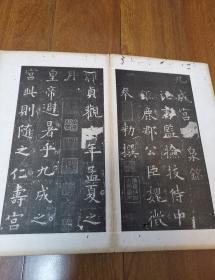 九成宮 泉銘
祕書監檢校侍中
鉅鹿郡公臣魏徵
奉 勑撰
維貞觀 年孟夏之
月
皇帝避暑乎九成之
宮此則隨之仁壽宮